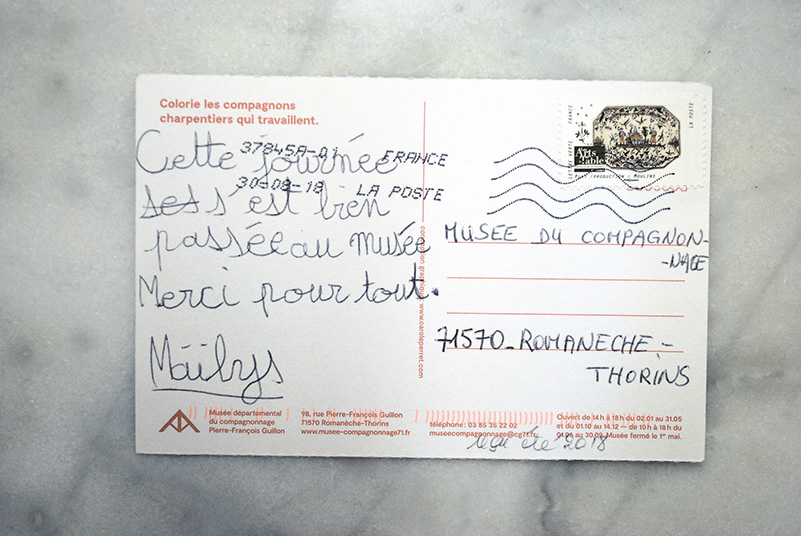 Colorie les compagnons
charpentiers qui travaillent.
37845A-01 FRANCE
30-08-18 LA POSTE
Cette journée
ses s'est bien
passée au musée
Merci pour tout.
Maïlys
conception graphique : www.caroleperret.com
FRANCE
LA POSTE
LETTRE VERTE
Arts
table
MUSEE DU COMPAGNON-
-NAGE
71570_ROMANECHE-
THORINS
Musée départemental
du compagnonnage
Pierre-François Guillon
98, rue Pierre-François Guillon
71570 Romanèche-Thorins
www.musee-compagnonnage71.fr
téléphone : 03 85 35 22 02
museecompagnonnage@cg71.fr
Ouvert de 14h à 18h du 02.01 au 31.05
et du 01.10 au 14.12 — de 10h à 18h du
01.06 au 30.09. Musée fermé le 1er mai.
reçu été 2018